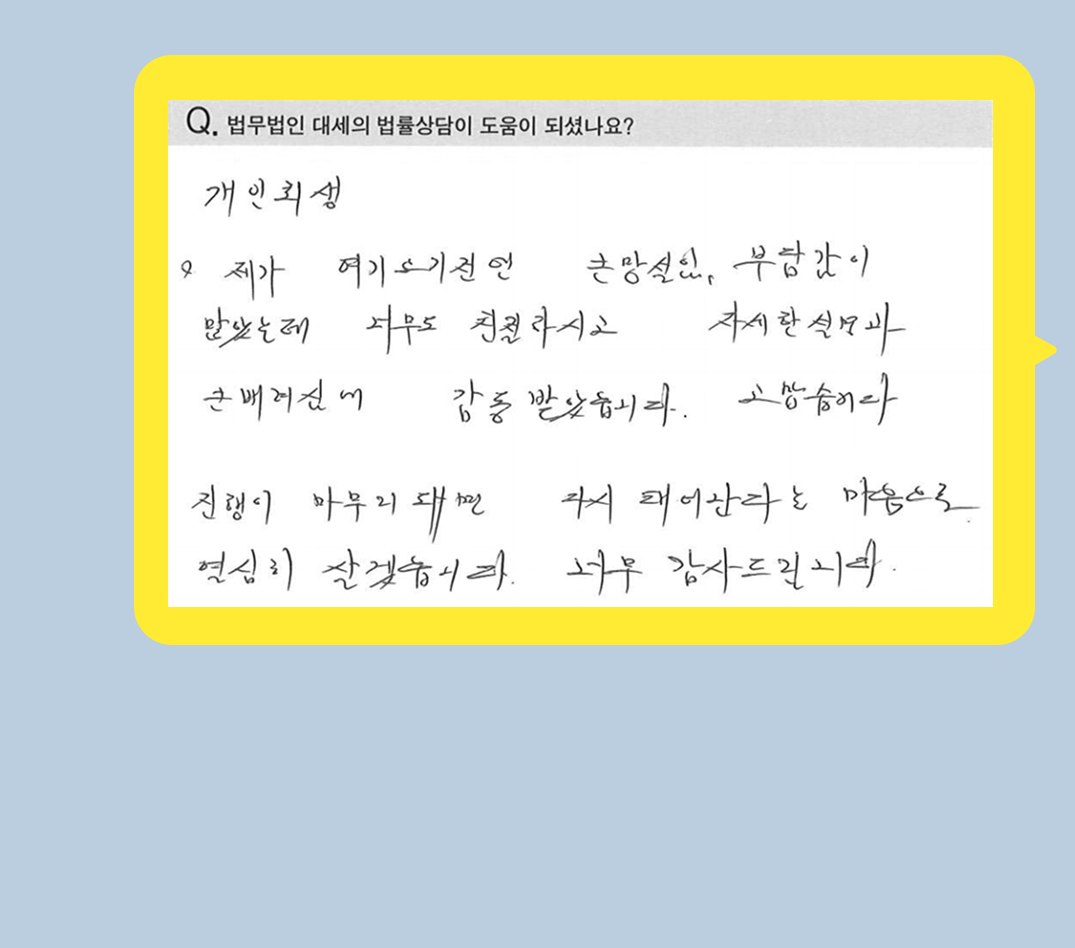 Q. 법무법인 대세의 법률상담이 도움이 되셨나요?
개인회생
제가 여기오기전엔 큰망설임, 부담감이
많았는데 너무도 친절하시고 자세한설명과
큰배려심에 감동받았습니다. 고맙습니다
진행이 마무리돼면 다시 태어난다는 마음으로
열심히 살겠습니다. 너무 감사드립니다.